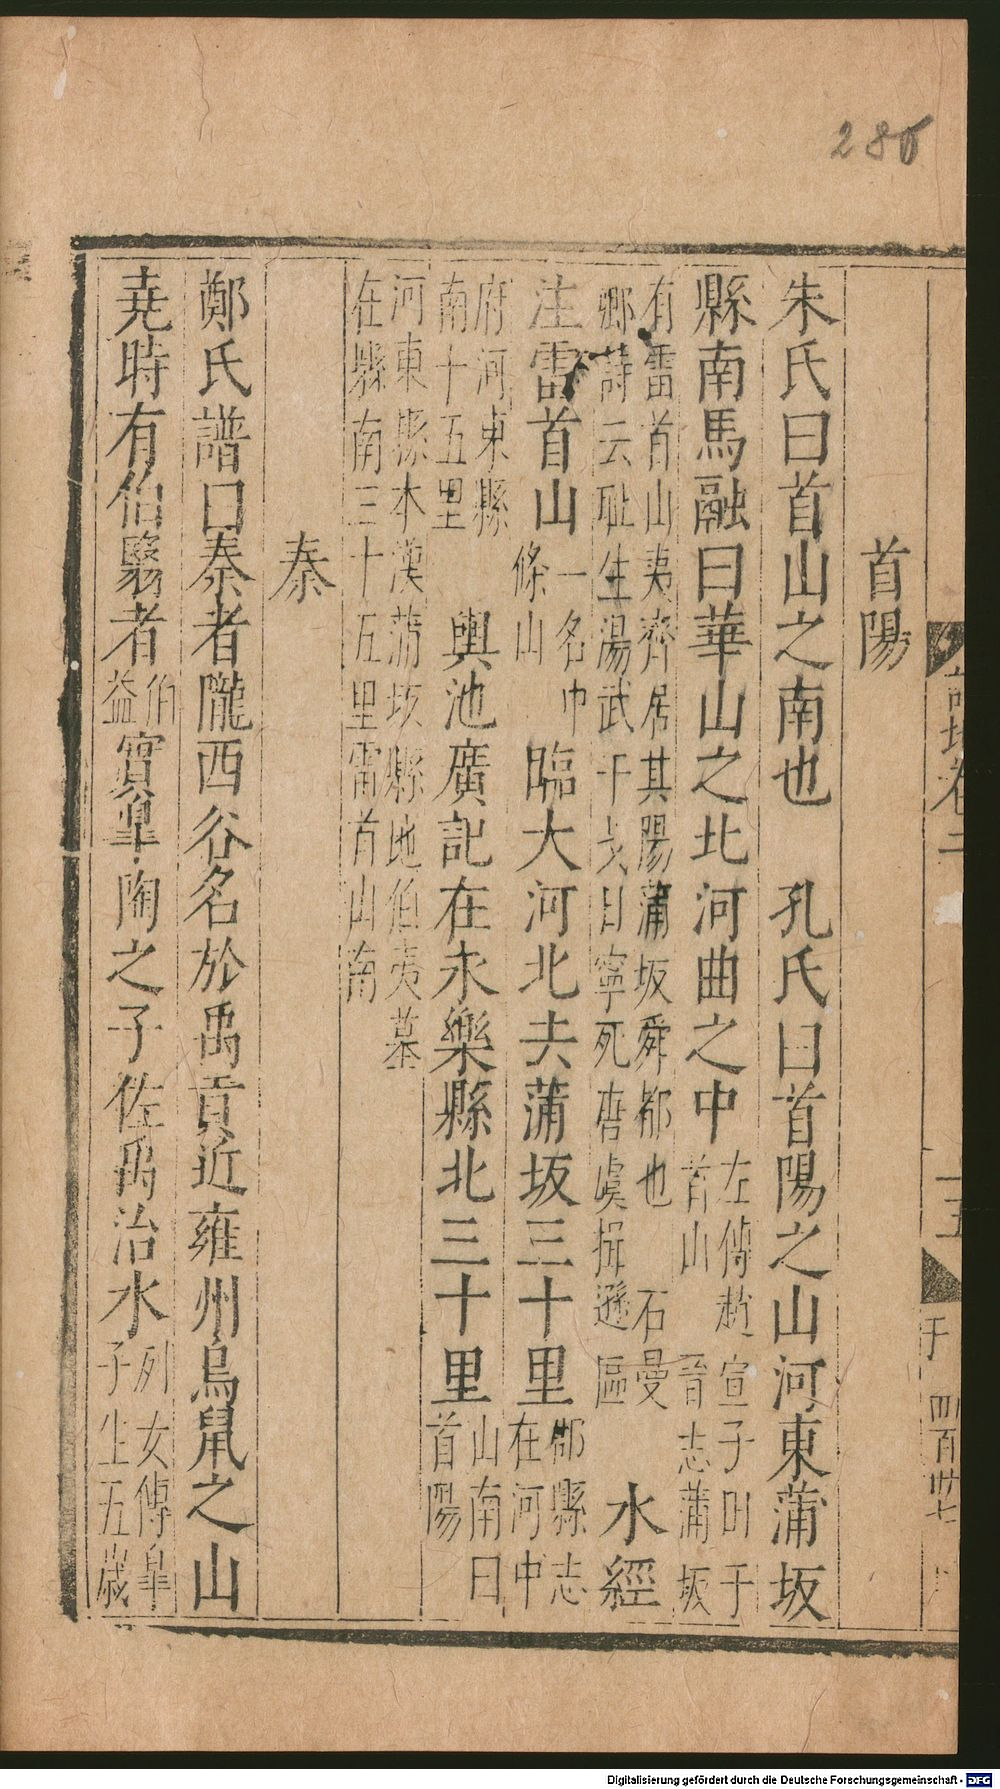 286
詩地卷二
十五
于
四百卅七
首陽
朱氏曰首山之南也　孔氏曰首陽之山河東蒲坂
縣南馬融曰華山之北河曲之中左傳趙宣子田于首山　晉志蒲坂
有雷首山夷齊居其陽蒲坂舜都也　石曼卿詩云耻生湯武干戈日寧死唐虞揖遜區　水經
注雷首山一名中條山臨大河北去蒲坂三十里郡縣志在河中
府河東縣南十五里　輿地廣記在永樂縣北三十里山南曰首陽
河東縣本漢蒲坂縣地伯夷墓在縣南三十五里雷首山南
秦
鄭氏譜曰秦者隴西谷名於禹貢近雍州烏鼠之山
堯時有伯翳者伯益實臯陶之子佐禹治水列女傳臯子生五歲
Digitalisierung gefördert durch die Deutsche Forschungsgemeinschaft - DFG